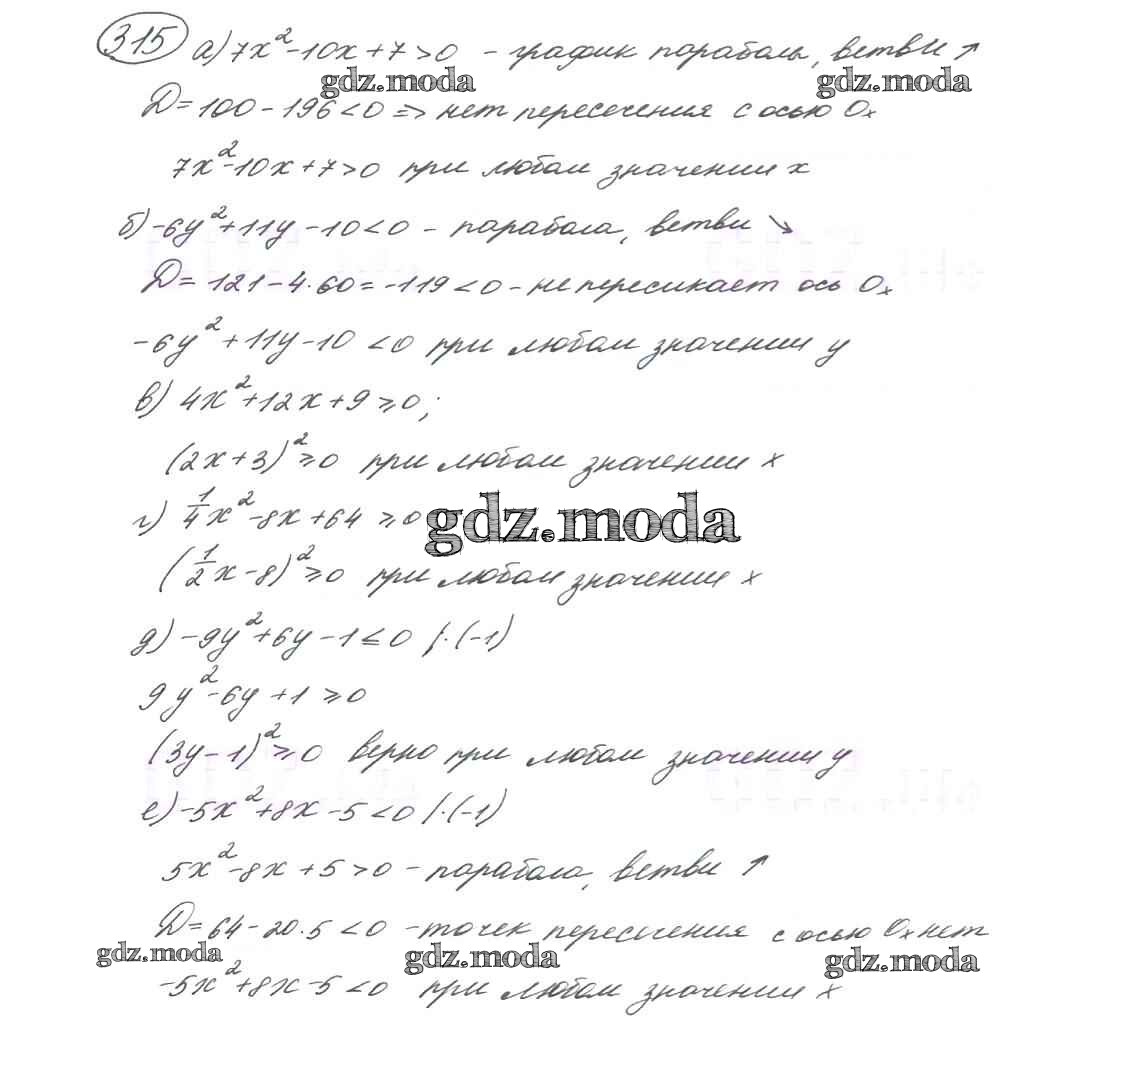 315 а) 7x²-10x+7>0 - график параболы, ветви ↗
gdz.moda gdz.moda
D=100-196<0 => нет пересечения с осью Ox
7x²-10x+7>0 при любом значении x
б) -6y²+11y-10<0 - парабола, ветви ↘
D=121-4·60=-119<0 - не пересикает ось Ox
-6y²+11y-10<0 при любом значении y
в) 4x²+12x+9≥0;
(2x+3)²≥0 при любом значении x
г) 1/4x²-8x+64≥0 gdz.moda
(1/2x-8)²≥0 при любом значении x
д) -9y²+6y-1≤0 /·(-1)
9y²-6y+1≥0
(3y-1)²≥0 верно при любом значении y
е) -5x²+8x-5<0 /·(-1)
5x²-8x+5>0 - парабола, ветви ↗
D=64-20·5<0 - точек пересечения с осью Ox нет
gdz.moda gdz.moda gdz.moda
-5x²+8x-5<0 при любом значении x